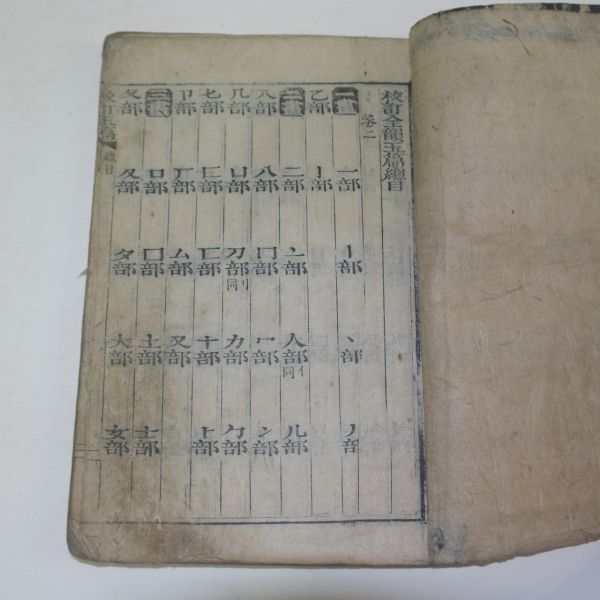 校訂全韻玉篇總目
卷二
一畫 一部 丨部 丶部 丿部
乙部 亅部
二畫 二部 亠部 人部 亻同 儿部
入部 八部 冂部 冖部 冫部
几部 凵部 刀部 刂同 力部 勹部
匕部 匚部 匸部 十部 卜部
卩部 厂部 厶部 又部
三畫 口部 囗部 土部 士部
夂部 夊部 夕部 大部 女部
校訂玉篇 總目